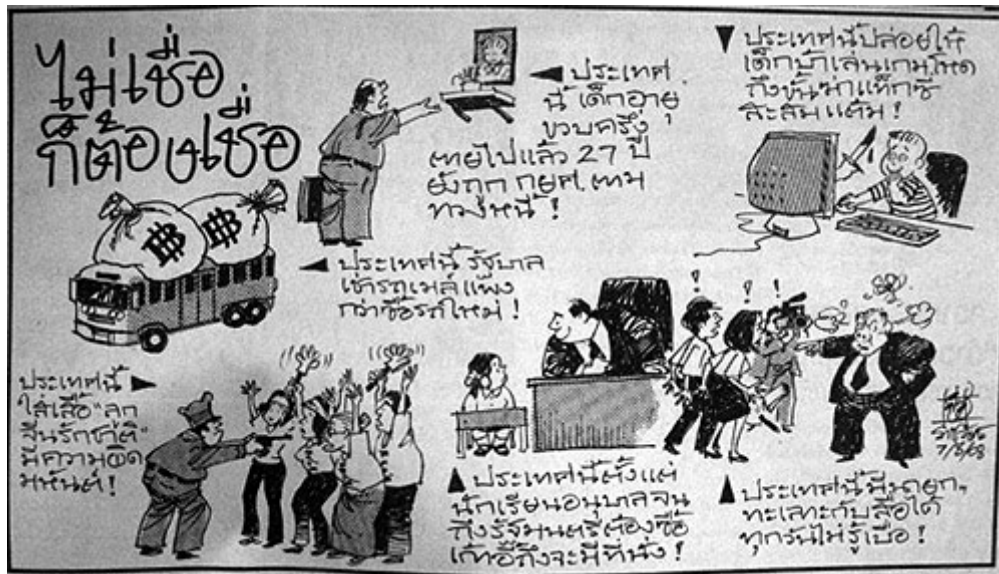 ไม่เชื่อ
ก็ต้องเชื่อ
ประเทศ
นี้ เด็กอายุ
ขวบครึ่ง
ตายไปแล้ว 27 ปี
ยังถูก กยศ. ตาม
ทวงหนี้ !
ประเทศนี้ปล่อยให้
เด็กบ้าเล่นเกมโหด
ถึงขั้นฆ่าแท็กซี่
สะสมแต้ม !
ประเทศนี้ รัฐบาล
เช่ารถเมล์แพง
กว่าซื้อรถใหม่ !
ประเทศนี้
ใส่เสื้อ "ลูก
จีนรักชาติ"
มีความผิด
มหันต์ !
ประเทศนี้ตั้งแต่
นักเรียนอนุบาลจน
ถึงรัฐมนตรีต้องซื้อ
เก้าอี้ถึงจะมีที่นั่ง !
ประเทศนี้มีนายก,
ทะเลาะกับสื่อได้
ทุกวันไม่รู้เบื่อ !
฿ ฿
! ! !